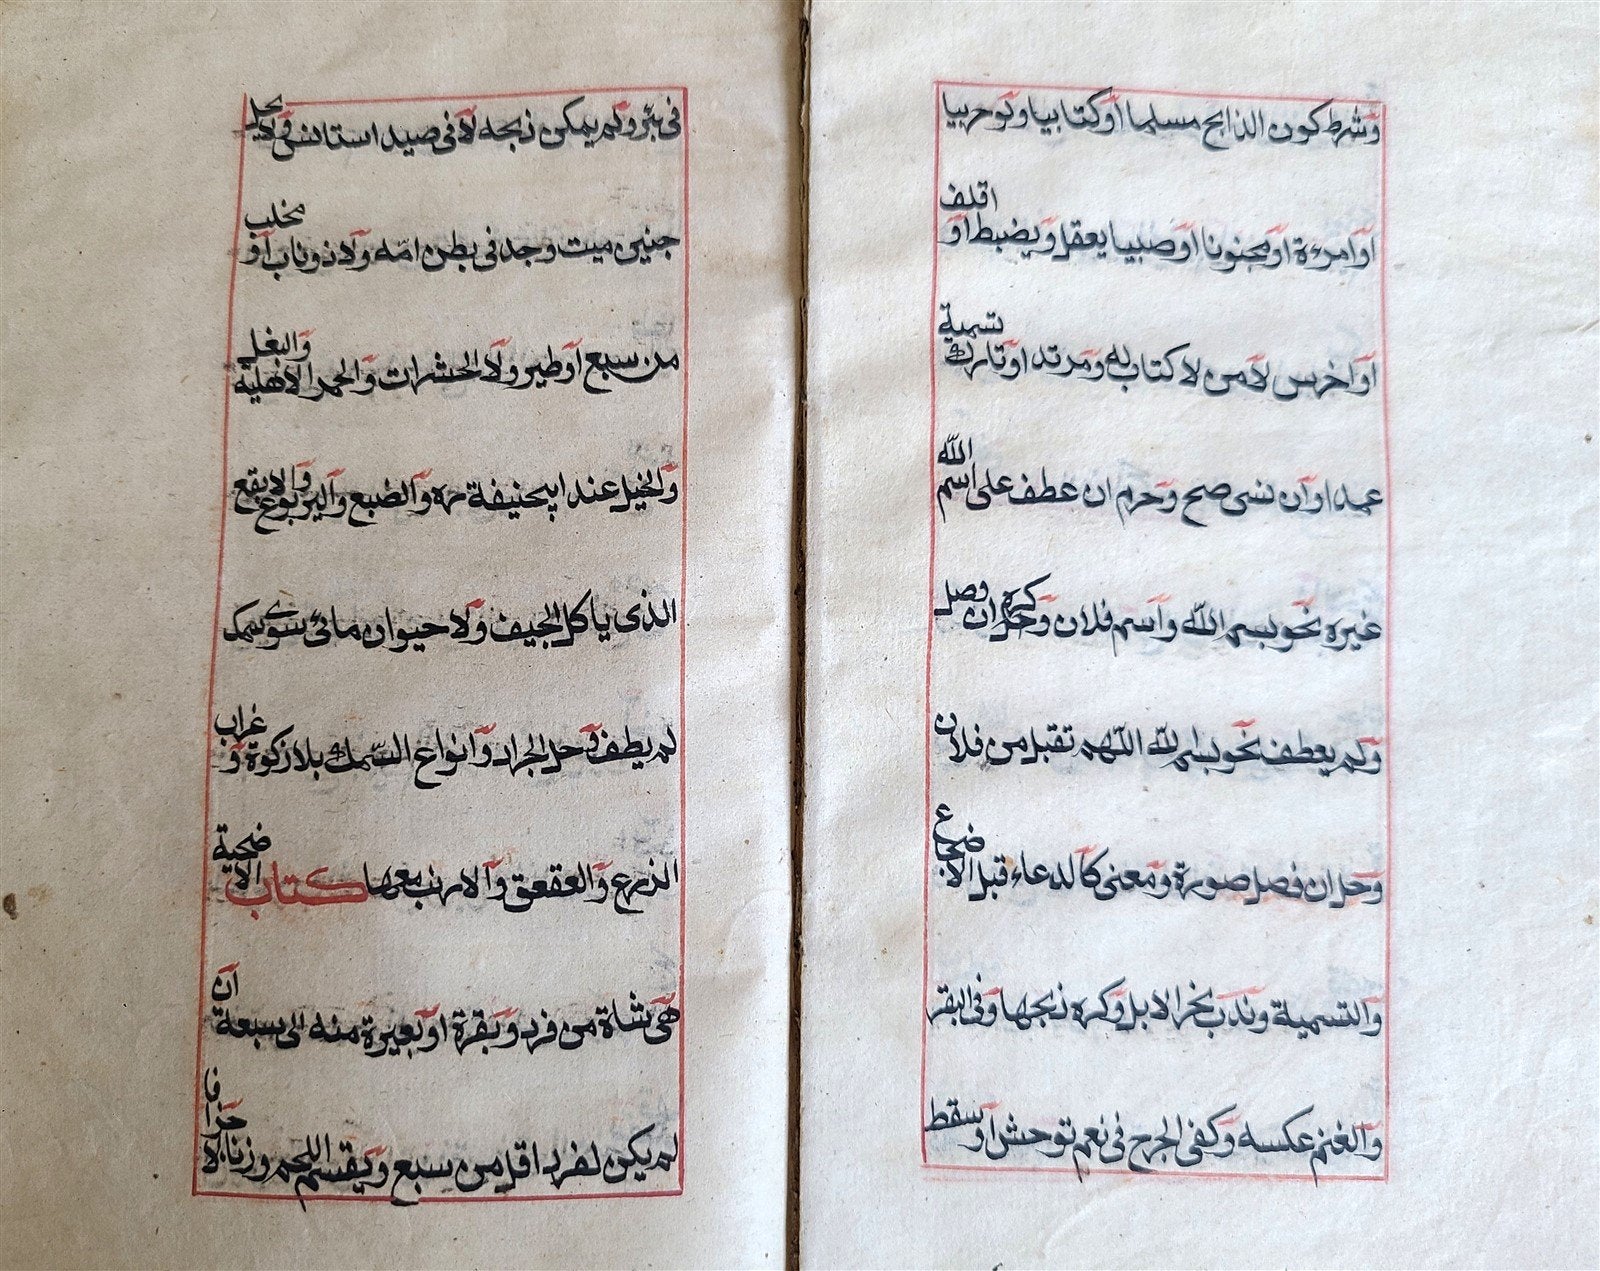 وشرط كون الذابح مسلما اوكتابيا ولوحربيا
اوامرءة اومجنونا اوصبيا يعقل ويضبط او اقلف
اواخرس لامن لا كتاب له ومرتد اوتارك تسمية
عمدا اوان نسى صح وحرم ان عطف على اسم الله
غيره نحو بسم الله واسم فلان وكره ان وصل
ولم يعطف نحو بسم الله اللهم تقبل من فلان
وحل ان فصل صورة ومعنى كالدعاء قبل الاضجاع
والتسمية وندب نحر الابل وكره ذبحها وفى البقر
والغنم عكسه وكفى الجرح فى نعم توحش اوسقط
فى بئر ولم يمكن ذبحه لا فى صيد استانس ولا يحل
جنين ميت وجد فى بطن امه ولا ذوناب او مخلب
من سبع اوطير ولا الحشرات والحمر الاهلية والبغل
والخيل عند ابيحنيفة ره والضبع واليربوع والابقع
الذى ياكل الجيف ولا حيوان مائى سوى سمك
لم يطف وحل الجراد وانواع السمك بلا زكوة و غراب
الذرع والعقعق والارنب معها كتاب الاضحية
هى شاة من فرد وبقرة اوبعيرة منه الى سبعة ان
لم يكن لفرد اقل من سبع ويقسم اللحم وزنا لا جزافا